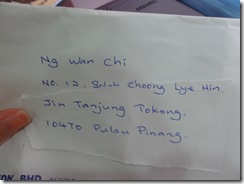 Ng Wan Chi
No. 12, Cheong Lye Hin,
Jln Tanjung Tokong,
10470 Pulau Pinang.
BHD